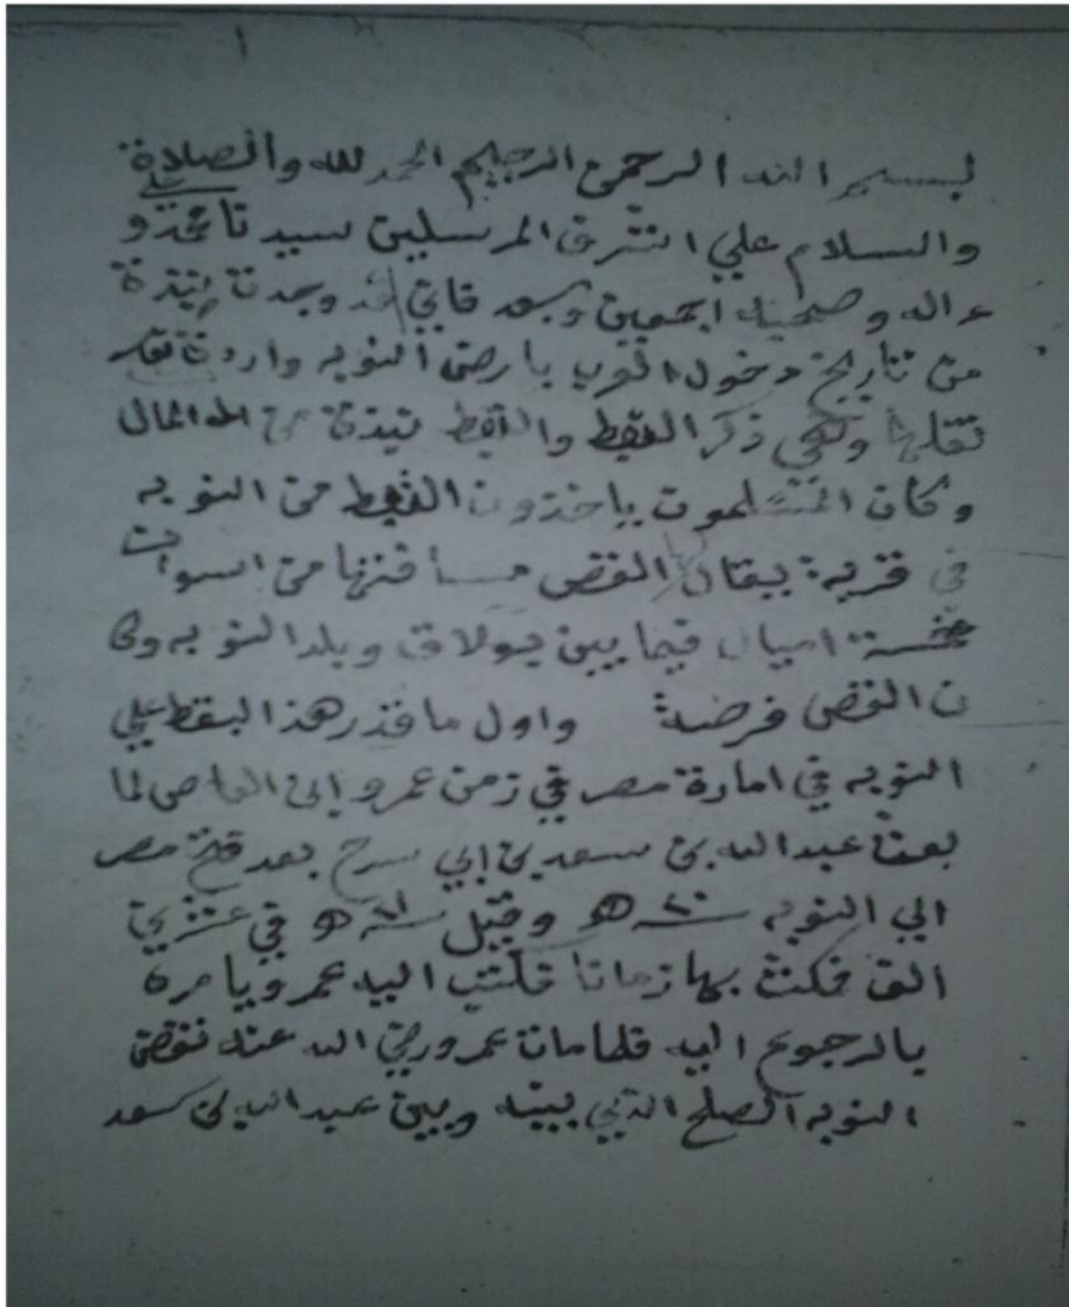 بسم الله الرحمن الرحيم الحمد لله والصلاة
والسلام علي اشرف المرسلين سيدنا محمد و علي
ءاله وصحبه اجمعين وبعد فاني قد وجدت نبذة
من تاريخ دخول العرب بارض النوبه واردة
نقلها وهي ذكر البقط والبقط نبذة من المال
وكان المسلمون ياخذون البقط من النوبه
في قرية يقال لها القص مسافتها من اسوان
خمسة اميال فيما بين بولاق وبلد النوبه وكا
ن القص فرضة واول ما قدر هذ البقط علي
النوبه في امارة مصر في زمن عمرو ابن العاص لما
بعث عبد الله بن سعد بن ابي سرح بعد فتح مصر
الي النوبه سنة ٢٠ هـ وقيل سنة ٢١ هـ في عشرين
الف فمكث بها زمانا فكتب اليه عمرو يامره
بالرجوع اليه فلما مات عمرو رضي الله عنه نقض
النوبه الصلح الذي بينه وبين عبد الله بن سعد